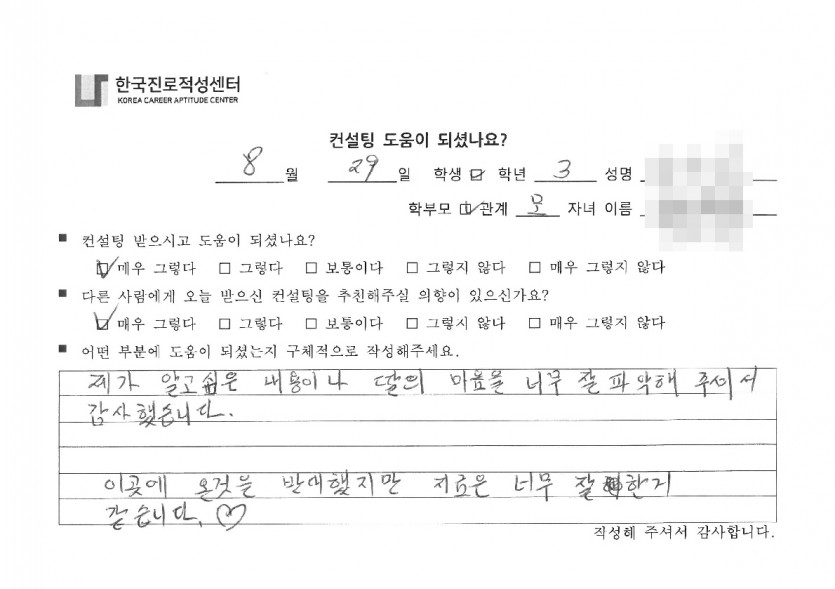 한국진로적성센터
KOREA CAREER APTITUDE CENTER
컨설팅 도움이 되셨나요?
8 월 29 일 학생 ☑ 학년 3 성명
학부모 ☑ 관계 모 자녀 이름
■ 컨설팅 받으시고 도움이 되셨나요?
☑ 매우 그렇다 □ 그렇다 □ 보통이다 □ 그렇지 않다 □ 매우 그렇지 않다
■ 다른 사람에게 오늘 받으신 컨설팅을 추천해주실 의향이 있으신가요?
☑ 매우 그렇다 □ 그렇다 □ 보통이다 □ 그렇지 않다 □ 매우 그렇지 않다
■ 어떤 부분에 도움이 되셨는지 구체적으로 작성해주세요.
제가 알고싶은 내용이나 딸의 마음을 너무 잘 파악해 주셔서
감사했습니다.
이곳에 온것을 반대했지만 지금은 너무 잘한거
같습니다. ♡
작성해 주셔서 감사합니다.